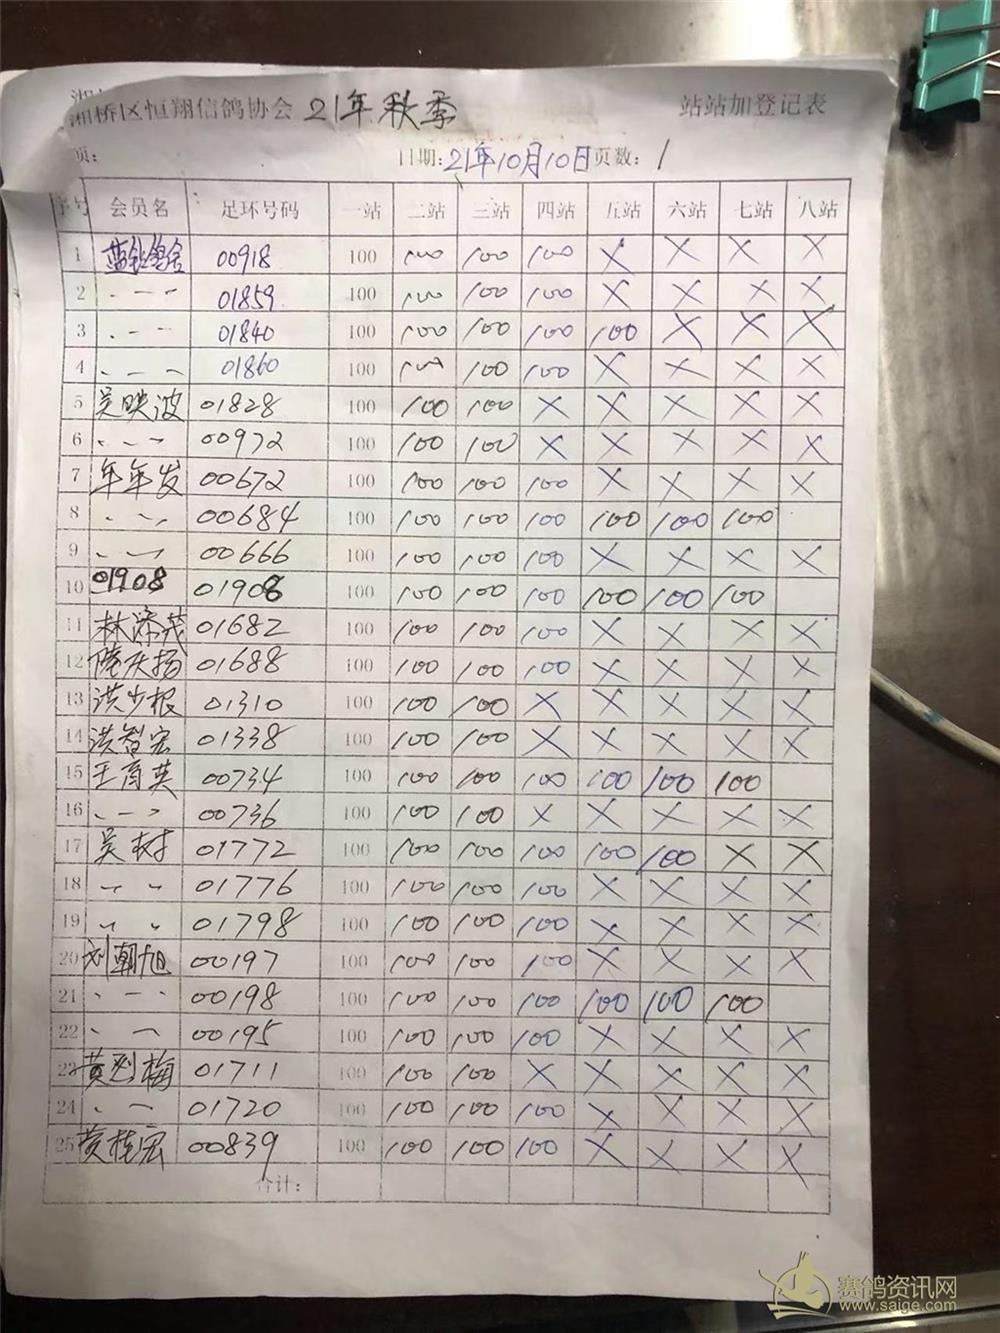 湘桥区恒翔信鸽协会 21年秋季 站站加登记表
页: 日期:21年10月10日 页数:1
序号 会员名 足环号码 一站 二站 三站 四站 五站 六站 七站 八站
1 蓝钻鸽舍 00918 100 100 100 100 X X X X
2 、一一 01859 100 100 100 100 X X X X
3 、一一 01840 100 100 100 100 100 X X X
4 、一一 01860 100 100 100 100 X X X X
5 吴映波 01828 100 100 100 X X X X X
6 、、一 00972 100 100 100 X X X X X
7 年年发 00672 100 100 100 100 X X X X
8 、一、 00684 100 100 100 100 100 100 100
9 、一一 00666 100 100 100 100 X X X X
10 01908 01908 100 100 100 100 100 100 100
11 林添茂 01682 100 100 100 100 X X X X
12 庆扬 01688 100 100 100 100 X X X X
13 洪少根 01310 100 100 100 X X X X X
14 洪智宏 01338 100 100 100 X X X X X
15 王育英 00734 100 100 100 100 100 100 100
16 、一一 00736 100 100 100 X X X X X
17 吴树 01772 100 100 100 100 100 100 X X
18 、、 01776 100 100 100 100 X X X X
19 、、 01798 100 100 100 100 X X X X
20 刘朝旭 00197 100 100 100 100 X X X X
21 、一、 00198 100 100 100 100 100 100 100
22 、一 00195 100 100 100 100 X X X X
23 黄烈梅 01711 100 100 100 X X X X X
24 、一 01720 100 100 100 100 X X X X
25 黄桂宏 00839 100 100 100 100 X X X X
合计:
赛鸽资讯网
www.saige.com